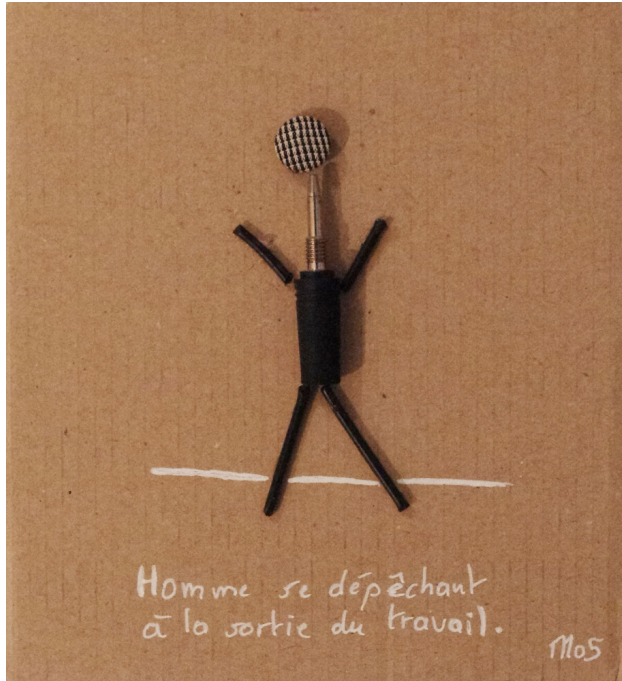 Homme se dépêchant
à la sortie du travail.
Mo5